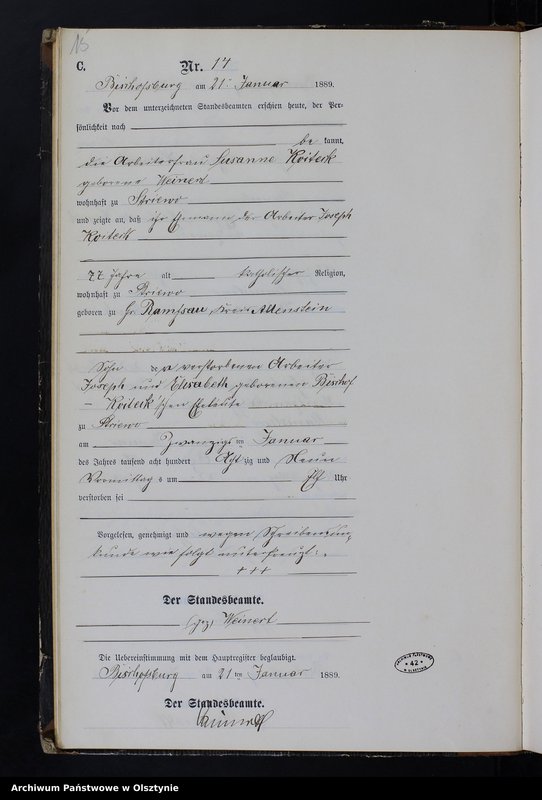 15
C.
Nr. 14
Bischofsburg am 21. Januar 1889.
Vor dem unterzeichneten Standesbeamten erschien heute, der Per-
sönlichkeit nach
be kannt,
die Arbeiterfrau Susanne Koiteck
geborene Weinert
wohnhaft zu Striewo
und zeigte an, daß ihr Ehemann der Arbeiter Joseph
Koiteck
77 Jahre alt katholischer Religion,
wohnhaft zu Striewo
geboren zu Gr. Ramsau, Kreis Allenstein
Sohn der verstorbenen Arbeiter
Joseph und Elisabeth geborenen Bischof
- Koiteck'schen Eheleute
zu Striewo
am Zwanzigsten Januar
des Jahres tausend acht hundert Achtzig und Neun
Vormittags um Uhr
verstorben sei
Vorgelesen, genehmigt und wegen Schreibensun-
kunde wie folgt unterkreuzt:
+++
Der Standesbeamte.
gez. Weinert
Die Uebereinstimmung mit dem Hauptregister beglaubigt.
Bischofsburg am 21ten Januar 1889.
Der Standesbeamte.
42
Archiwum Państwowe w Olsztynie